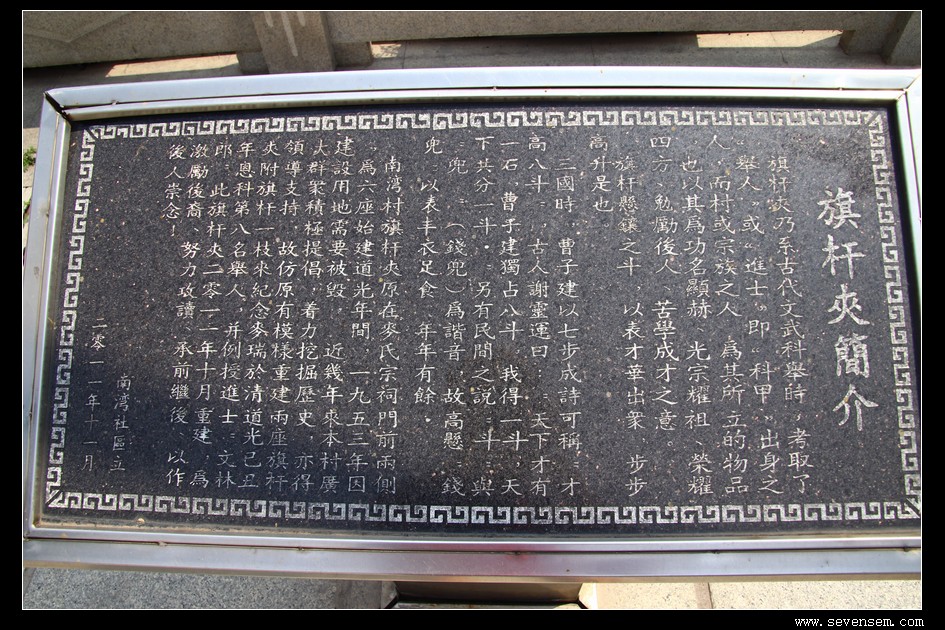 旗杆夾簡介
旗杆夾乃系古代文武科舉時，考取了
“舉人”或“進士”即“科甲”出身之
人，而村或宗族之人，為其所立的物品
也以其爲功名顯赫，光宗耀祖、榮耀
四方、勉勵後人、苦學成才之意。
旗杆懸鑲之斗，以表才華出衆，步步
高升是也。
三國時，曹子建以七步成詩可稱：才
高八斗：，古人謝靈運曰：：天下才有
一石，曹子建獨占八斗，我得一斗，天
下共分一斗。另有民間之說：斗：與
：兜：（錢兜）爲諧音，故高懸：錢
兜，以表丰衣足食，年年有餘。
南湾村旗杆夾原在麥氏宗祠門前兩側
，爲六座始建道光年間，一九五三年因
建設用地需要被毀，近幾年來本村廣
大群衆積極提倡，着力挖掘歷史，亦得
領導支持，故仿原有模樣重建兩座旗杆
夾附旗杆一枝來紀念麥瑞於清道光己丑
年恩科第八名舉人，并例授進士：文林
郎，此旗杆夾二零一一年十月重建，爲
激勵後裔、努力攻讀、承前繼後、以作
後人崇念！
南湾社區立
二零一一年十一月
www.sevensem.com